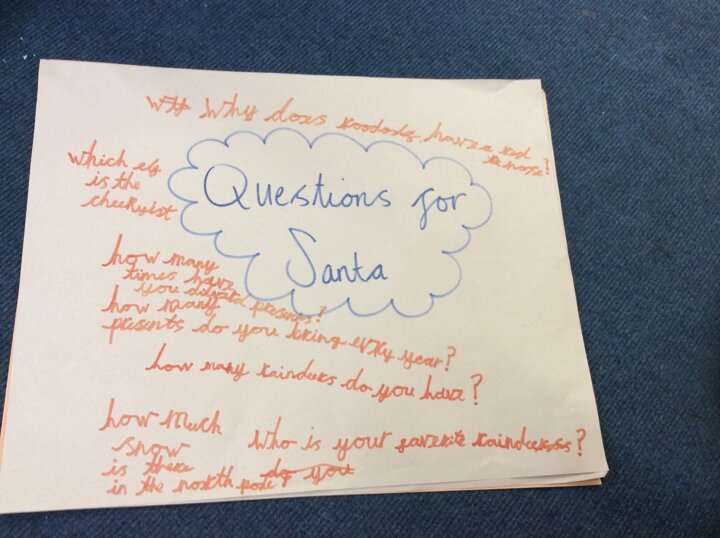 why does roodody have a red
nose?
Questions for
Santa
which elf
is the
cheekyist
how many
times have
you presents?
how many
presents do you bring evry year?
how many raindeers do you have?
how much
snow
is there
in the north pole?
Who is your faverite raindeerss?
do you